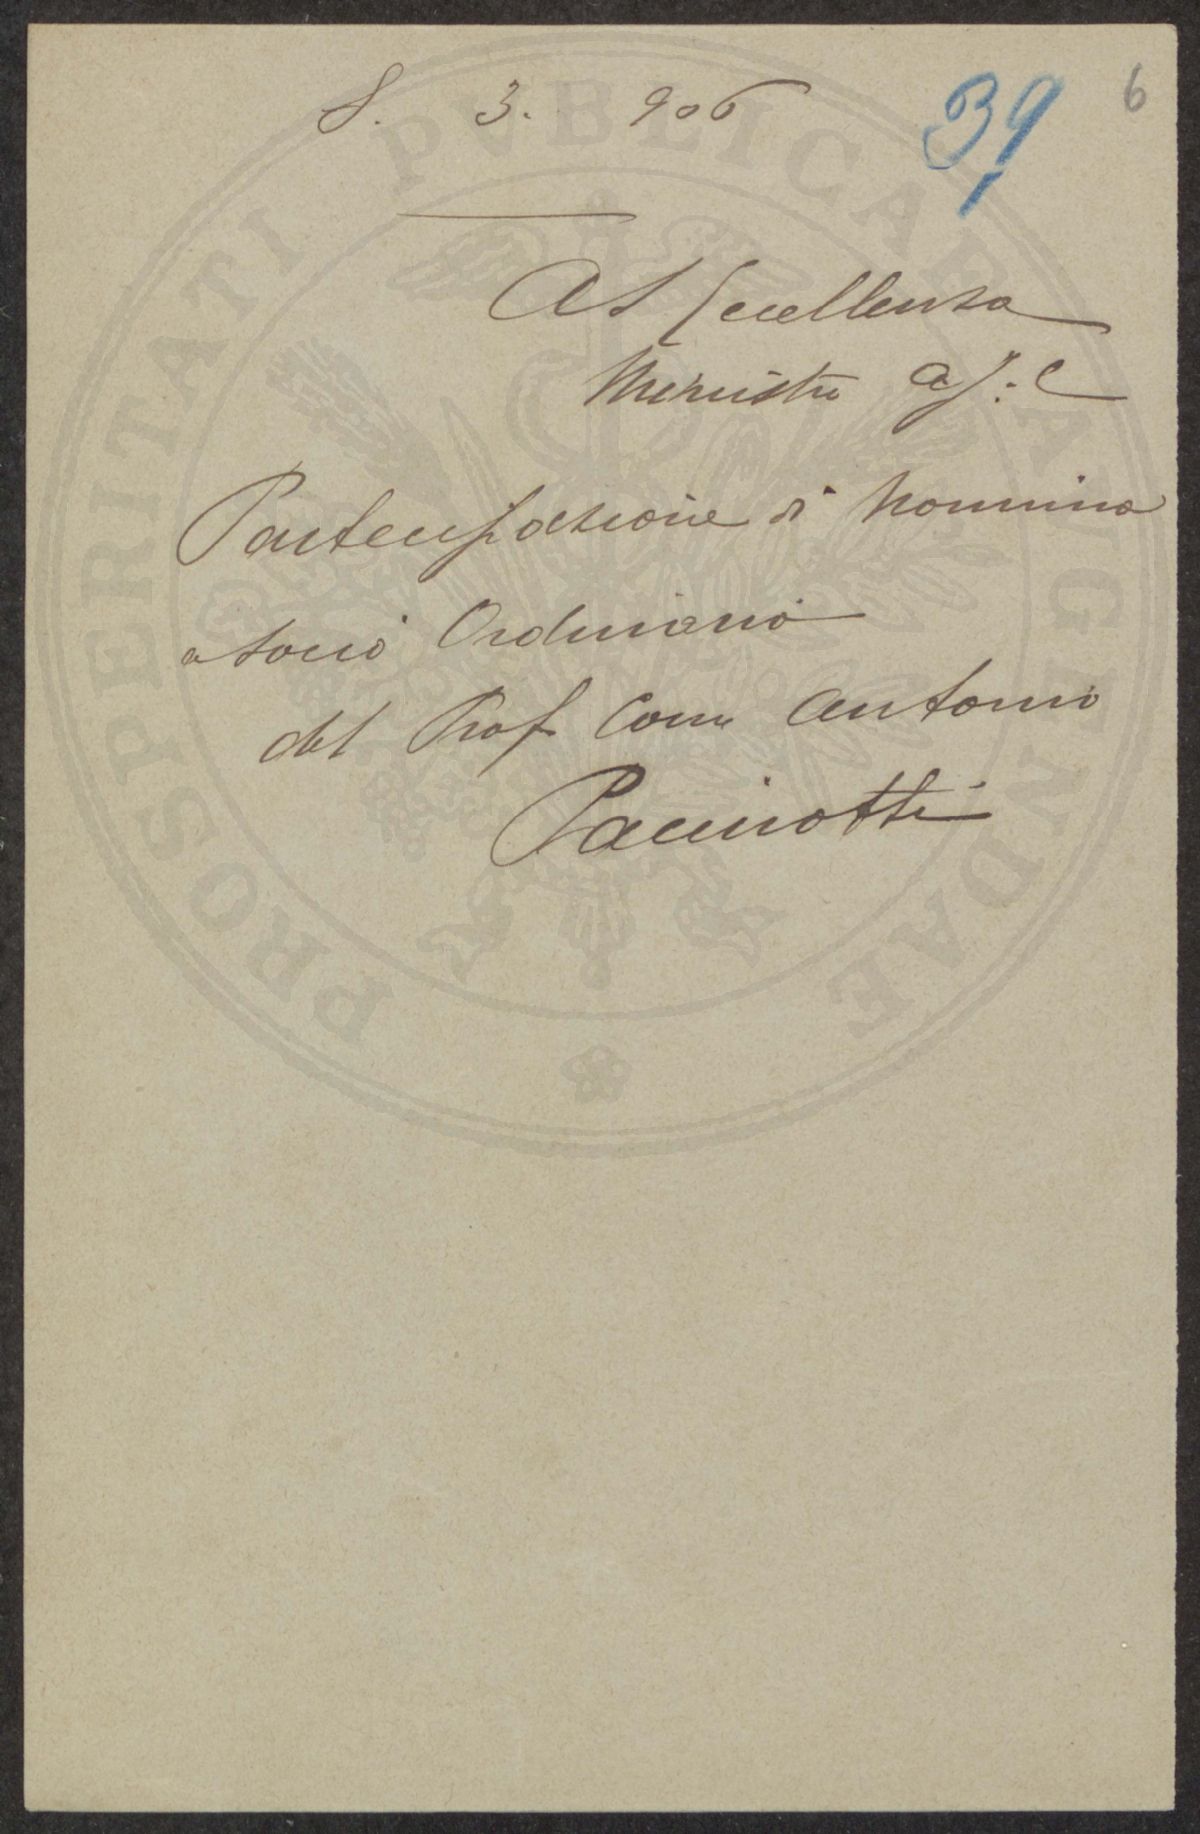 8. 3. 906
39
6
A S Eccellenza
Ministro A. I. C
Partecipazione di Nomina
a Socio Ordinario
del Prof Com Antonio
Pacinotti
PROSPERITATI PVBLICAE AVGENDAE